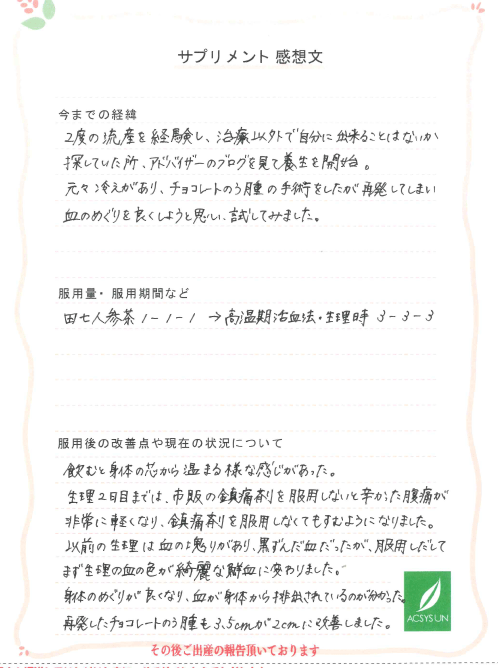 サプリメント 感想文
今までの経緯
2度の流産を経験し、治療以外で自分に出来ることはないか
探していた所、アドバイザーのブログを見て養生を開始。
元々冷えがあり、チョコレートのう腫の手術をしたが再発してしまい
血のめぐりを良くしようと思い、試してみました。
服用量・服用期間など
田七人参茶 1-1-1 → 高温期活血法・生理時 3-3-3
服用後の改善点や現在の状況について
飲むと身体の芯から温まる様な感じがあった。
生理2日目までは、市販の鎮痛剤を服用しないと辛かった腹痛が
非常に軽くなり、鎮痛剤を服用しなくてもすむようになりました。
以前の生理は血の塊りがあり、黒ずんだ血だったが、服用しだして
まず生理の血の色が綺麗な鮮血に変わりました。
身体のめぐりが良くなり、血が身体から排出されているのが分かった。
再発したチョコレートのう腫も3.5cmが2cmに改善しました。
ACSYS UN
その後ご出産の報告頂いております